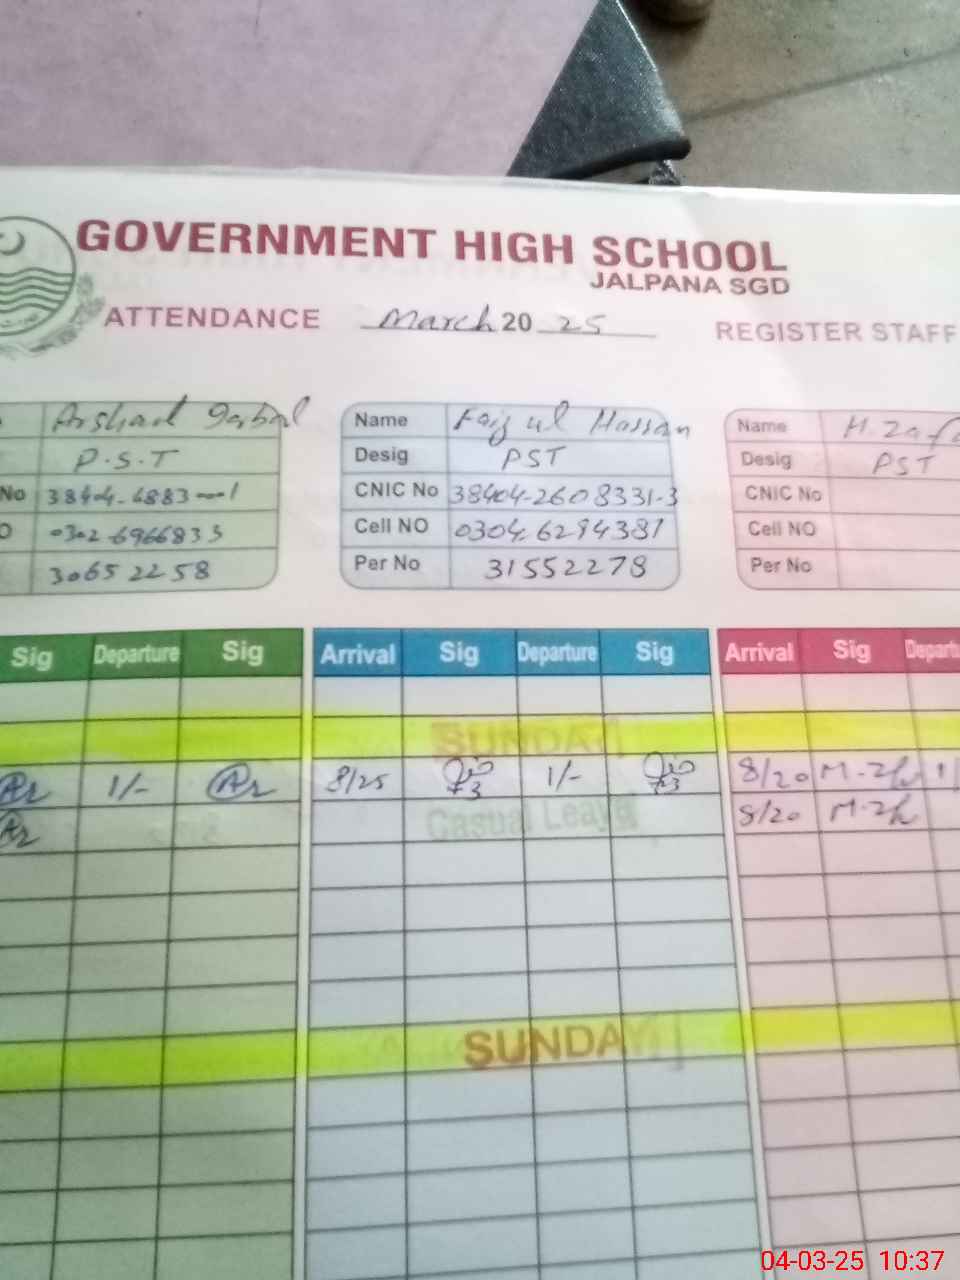 GOVERNMENT HIGH SCHOOL
JALPANA SGD
ATTENDANCE March 2025 REGISTER STAFF
Arshad Iqbal
P.S.T
No
0302 6966833
30652258
Name Faiz ul Hassan
Desig PST
CNIC No 38404-2608331-3
Cell NO 0304 6294381
Per No 31552278
Name H.
Desig PST
CNIC No
Cell NO
Per No
Sig Departure Sig Arrival Sig Departure Sig Arrival Sig
SUNDAY
1/- 8/25 1/- 8/20
Casual Leave 8/20
SUNDAY
04-03-25 10:37